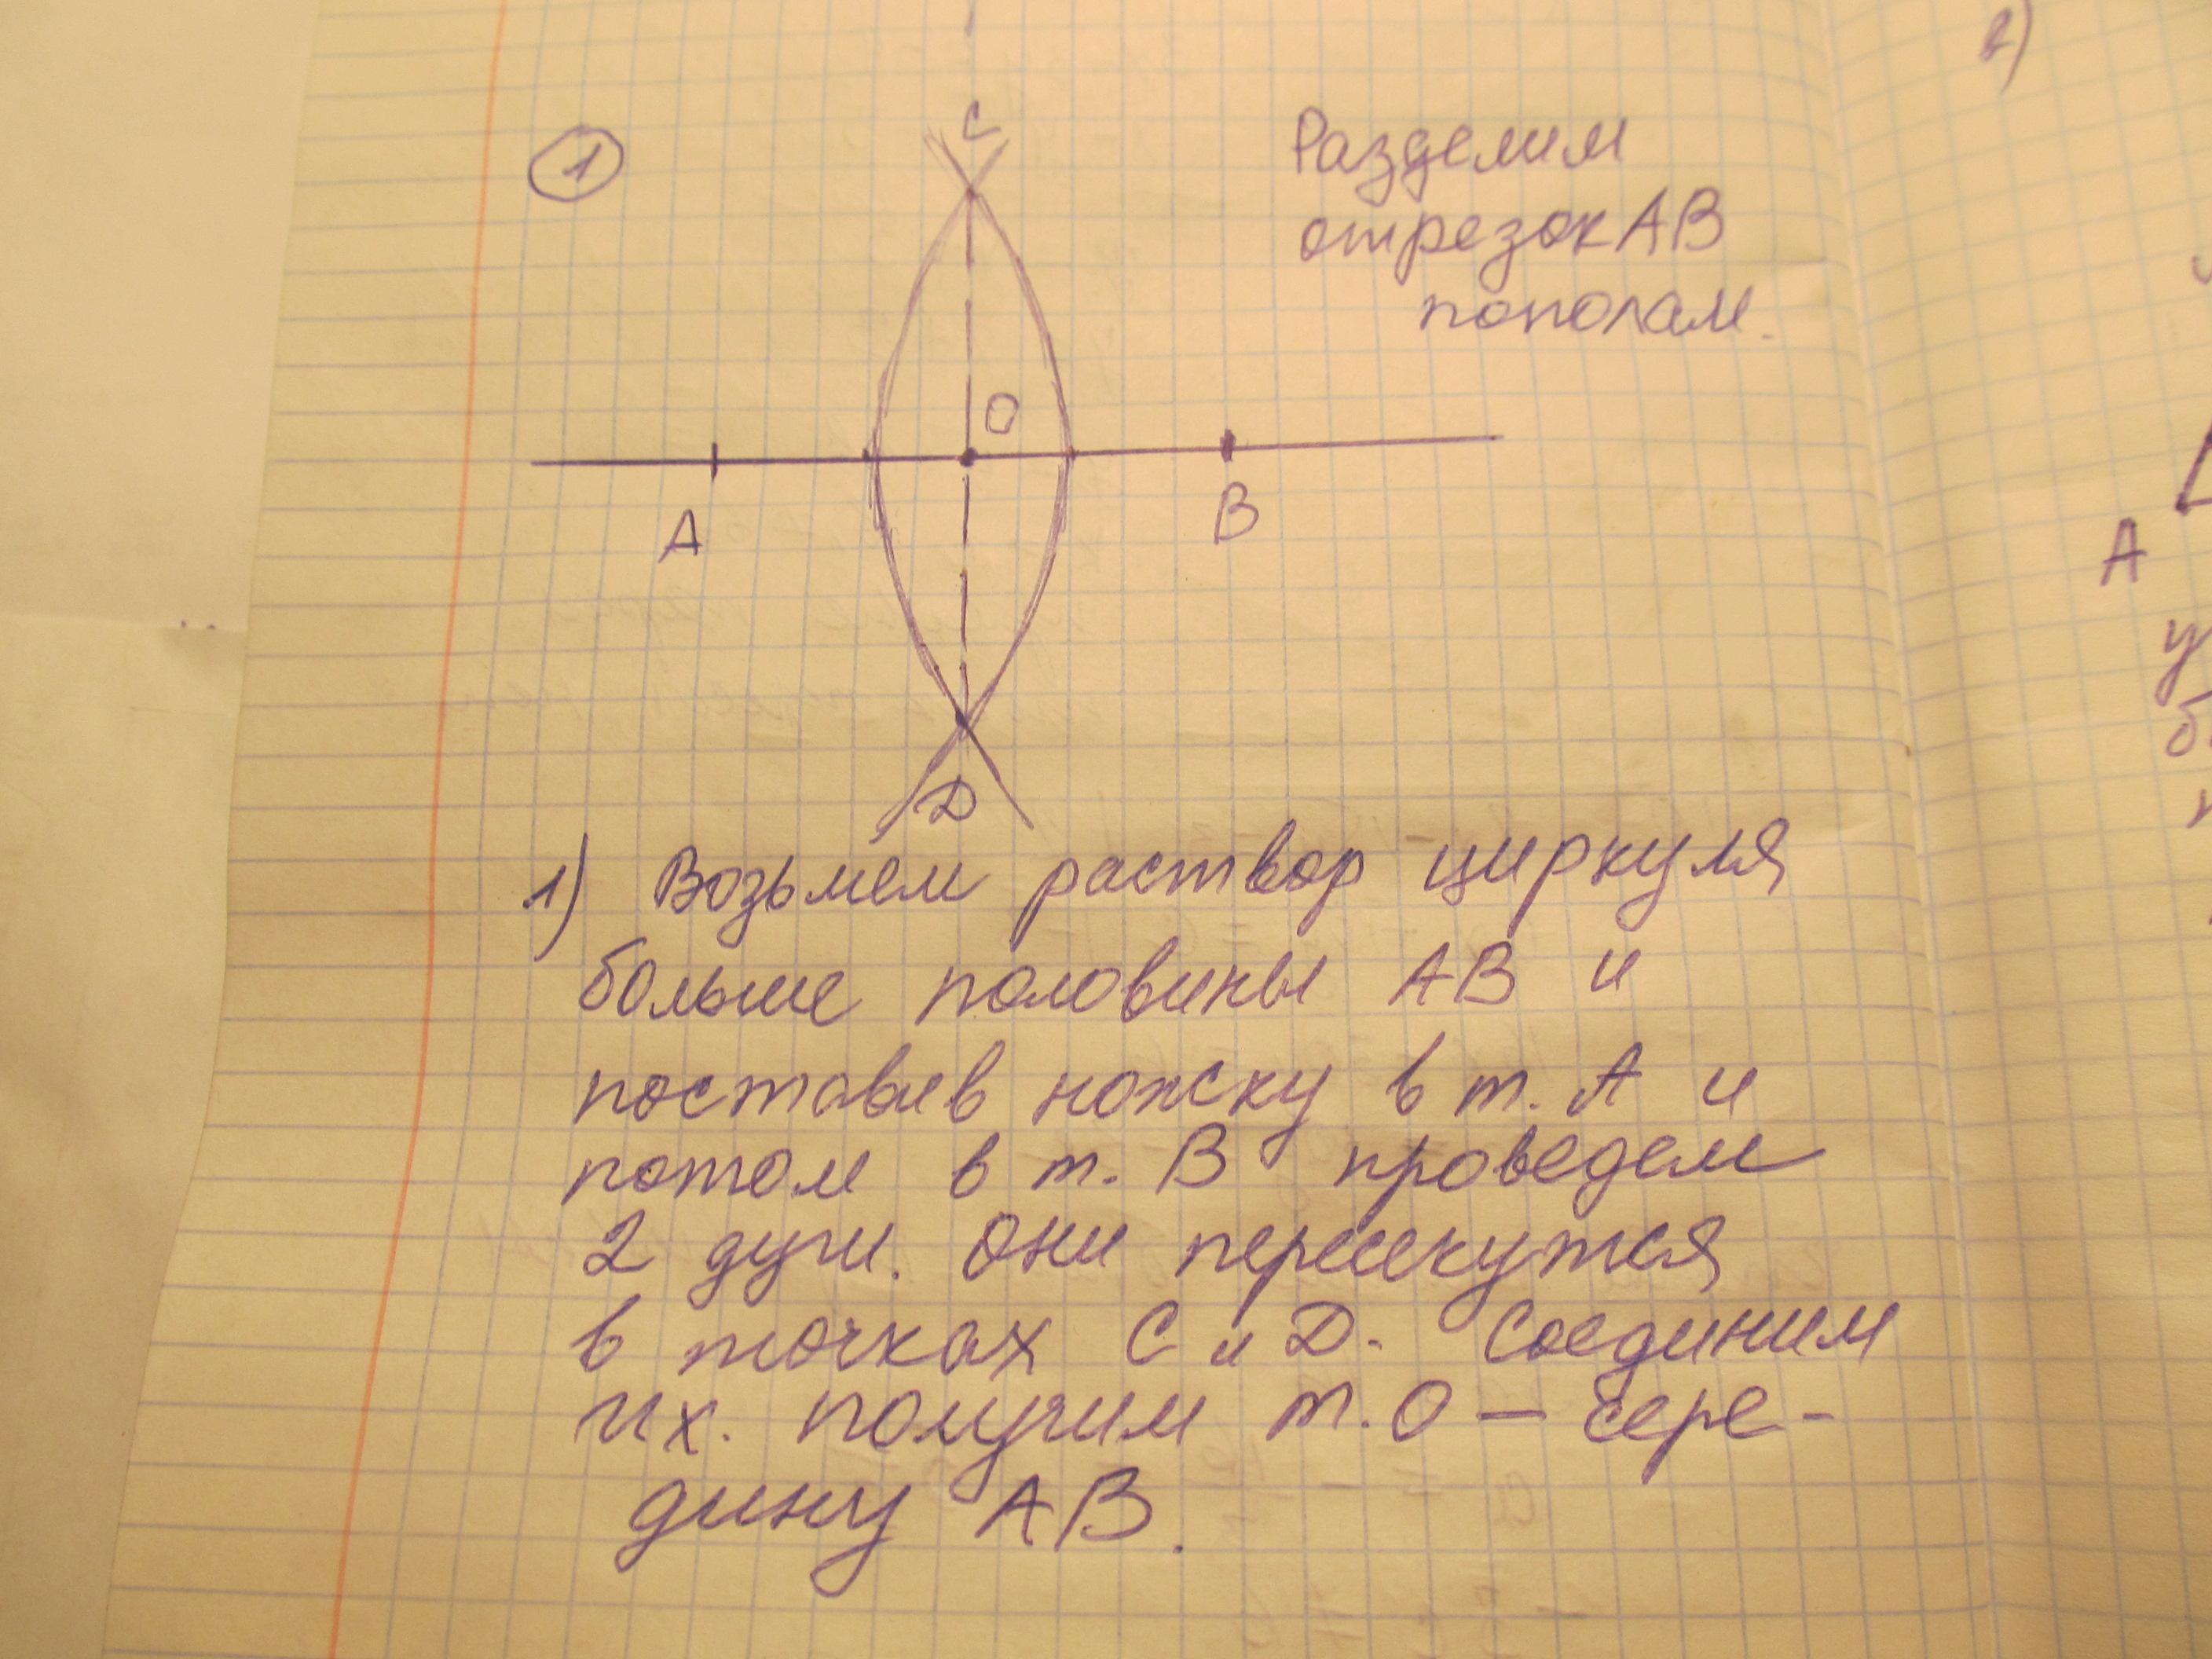 1
C
Разделим
отрезок AB
пополам.
O
A
B
D
1) Возьмем раствор циркуля
больше половины AB и
поставив ножку в т. A и
потом в т. B проведем
2 дуги. Они пересекутся
в точках C и D. Соединим
их. Получим т. O — сере-
дину AB.
2)
A